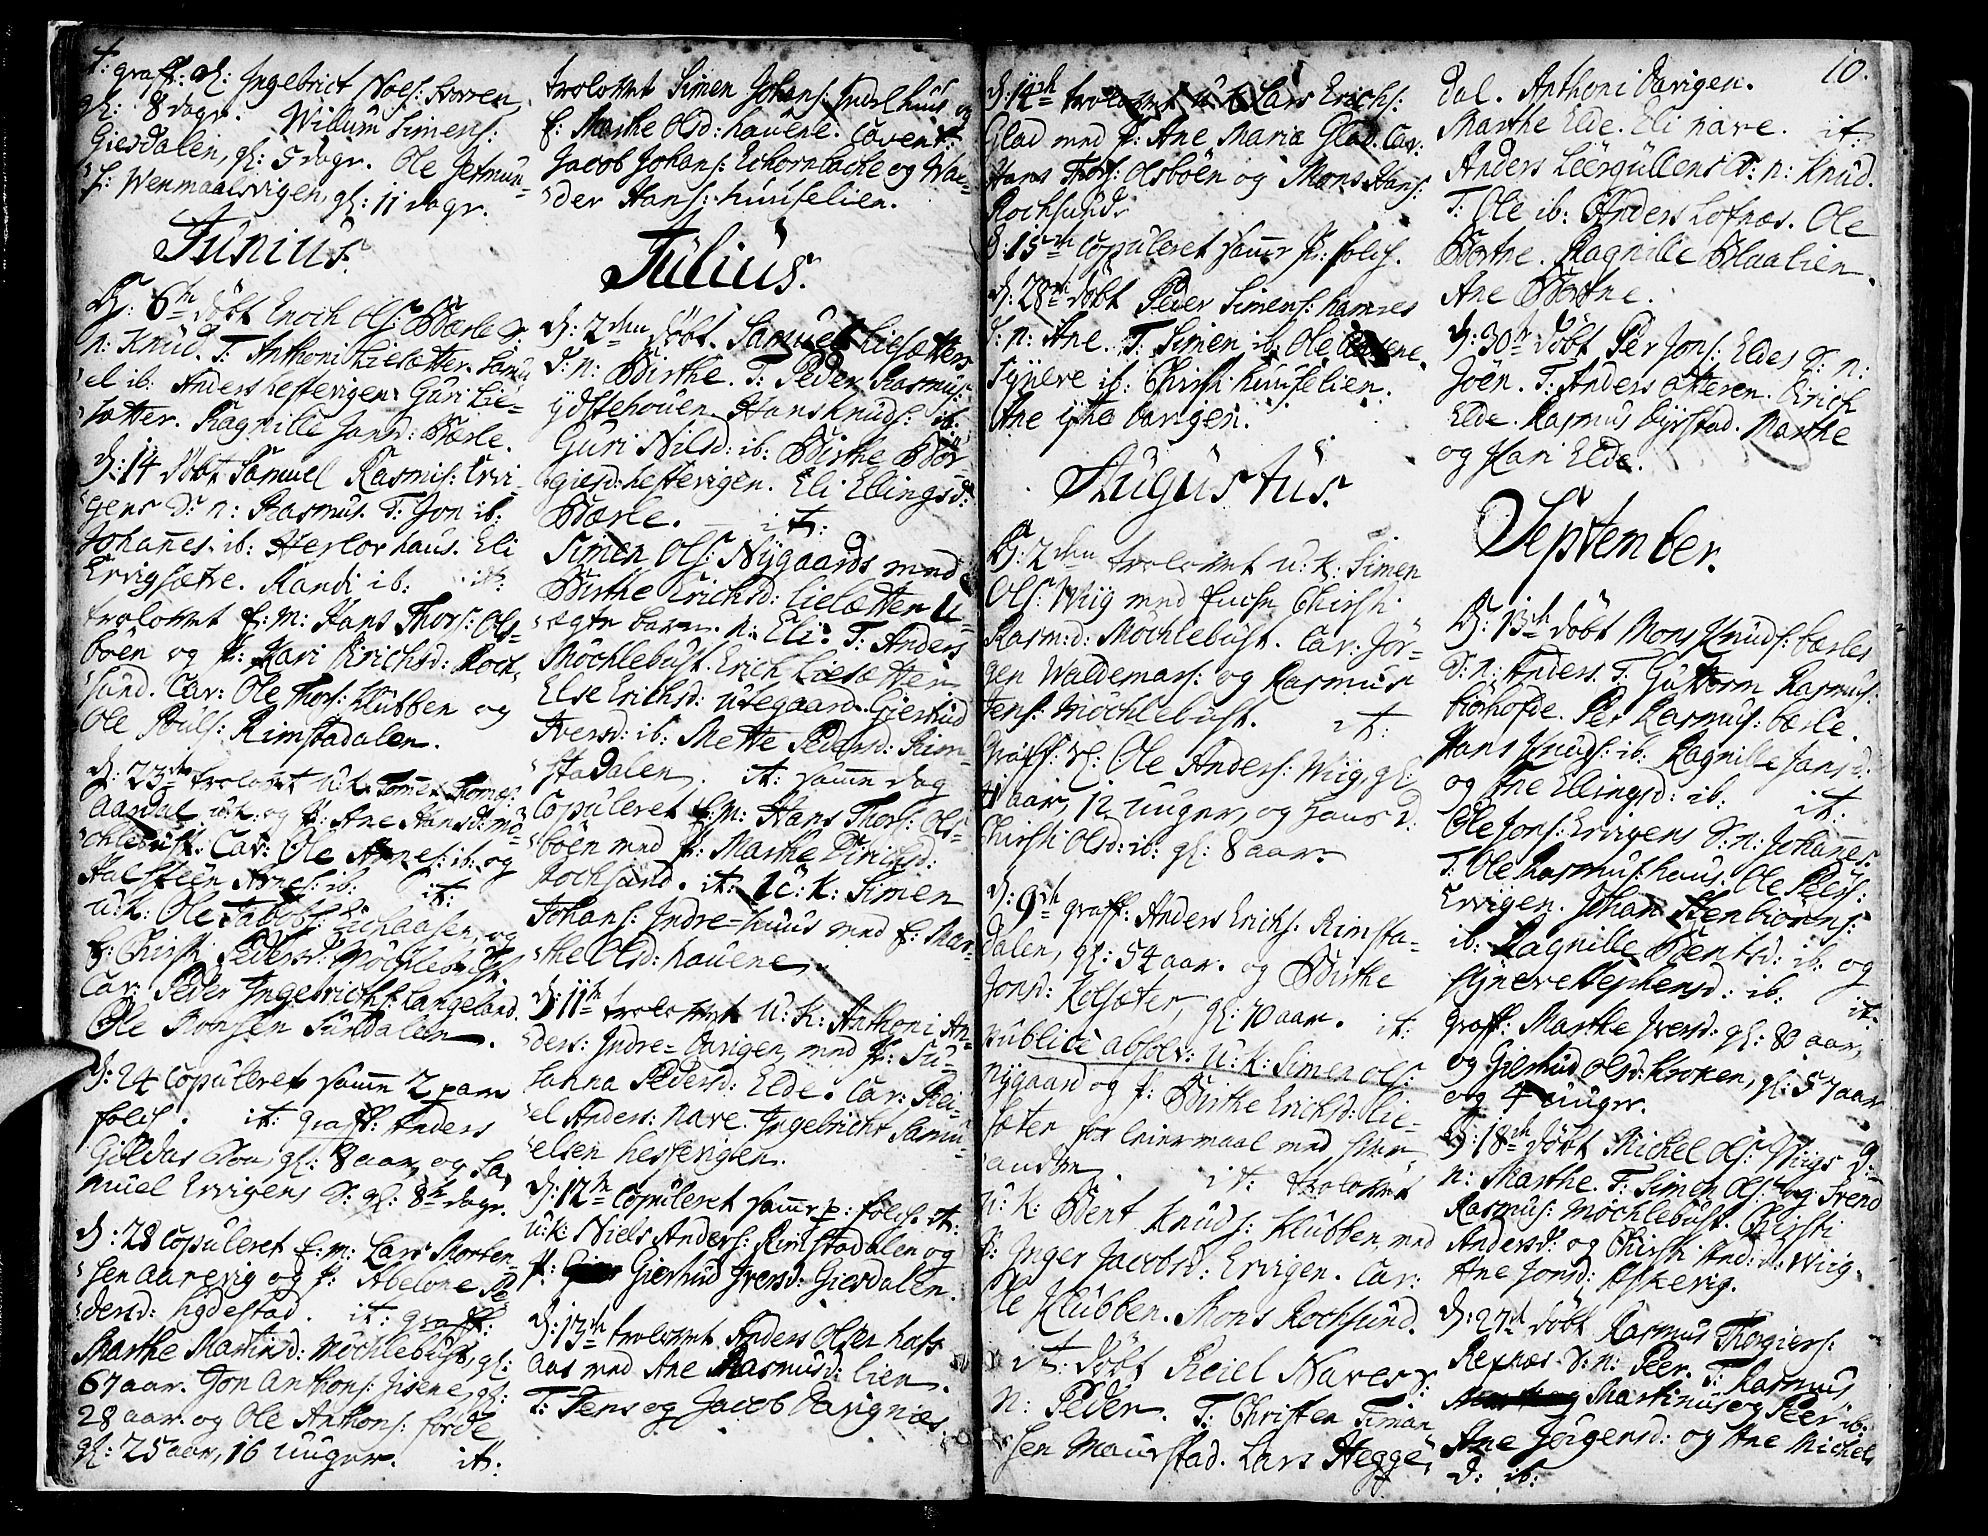 it: graff: gl: Ingebrict Noes: Korren,
gl: 8 dagr. Willum Simens:
Giesdalen, gl: 5 dagr. Ole Jetmun-
s: Wenmaalsvigen, gl: 11 dagr.
Junius.
D: 6te döbt Enoch Ols: Bærle S:
n: Knud. T: Anthoni Liesætter. Samu
el ib: Anders hestevigen. Guri Lie-
sætter. Ragnille Jansd: Bærle.
D: 14 döbt Samuel Rasmus: Ervi-
gens S: n: Rasmus. T: Jon ib:
Johannes. ib: Herlov haus. Eli
Ervigsætre. Randi ib: it:
trolovet E: M: Hans Thors: Ols-
böen og P: Kari Erichsd: Roch-
sund. Cav: Ole Thors: Klubben og
Ole Pouls: Rimstadalen.
D: 23de trolovet U.k. Tomes Tomes:
Aardal og P: Ane Hansd: Mö-
chlebust. Cav: Ole Arnes: ib: og
Halsteen Arnes: ib: it:
U:K: Ole Jacobs: Eichaasen, og
P: Chirsti Pedersd: Möchlebust.
Cav: Peder Ingebrichts: Langeland.
Ole Monsen Surdalen.
D: 24 Copuleret samme 2 par
folch. it: graff: Anders
Gildas Son, gl: 8 aar, og Sa-
muel Ervigens S: gl: 8te dagr.
D: 28 Copuleret E: M: Lars Morten-
sen Aarevig og P: Abelone Pe-
dersd: hydestad. it: graff:
Marthe Martind: Möchlebust, gl:
67 aar. Jon Anthons: Jisene, gl:
28 aar. og Ole Anthons: förde
gl: 25 aar, 16 uuger. it:
trolovet Simen Johans: Indrehuus og
P: Marthe Olsd: havene. Cavent:
Jacob Johans: Echornbache og Wal-
der Hans: huuselien.
Julius.
D: 2den döbt. Samuel Liesætters
D: n: Birthe. T: Peder Rasmus:
ydstehoven Hans Knuds: ib:
Guri Nilsd: ib: Birthe Bör-
giesd: hestevigen. Eli Ellingsd:
Bærle. it:
Simen Ols: Nygaards med
Birthe Erichsd: Liesætter U-
ægte barn. n: Eli. T: Anders
Möchlebust. Erich Liesætter
Else Erichsd: utegaard. Giertrud
Iversd: ib: Mette Pedersd: Rim-
stadalen. it: samme dag
Copuleret E:M: Hans Thors: Ols-
böen med P: Marthe Erichsd:
Rochsund. it: U: K: Simen
Johans: Indre-huus med P: Mar-
the Olsd: havene.
D: 11te trolovet U: K: Anthoni An-
ders: Indre-Barigen, med P: Su-
sanna Pedersd: Elde. Cav: Rei-
el Anders: Nave. Ingebricht Samu-
elsen hestevigen.
D: 12te Copuleret samme p: folch. it:
U:K: Niels Anders: Rimstadalen og
P: Giertrud Iversd: Giesdalen.
D: 13de trolovet Anders Olsen hafs
aas med Ane Rasmusd: lien.
T: Jens og Jacob Barignæs.
10.
D: 12te trolovet U:K Lars Erichs:
Glad med P: Ane Maria Glad. Cav:
Hans Thors: Olsböen og Mons Hans:
Rochsund.
D: 15de Copuleret samme P: folch.
D: 28de döbt Peder Simens: hamnes
D: n: Ane. T: Simen ib: Ole
Synneve ib: Chirsti huuselien.
Ane ytre barigen.
Augustus.
D: 2den trolovet U: K: Simen
Ols: Wiig med Enche Chirsti
Rasmd: Möchlebust. Cav: Jör-
gen Waldemars: og Rasmus
Jens: Möchlebust. it:
graff: gl: Ole Anders: Wiig, gl:
41 aar, 12 uuger, og hans D:
Chirsti Olsd: ib: gl: 8 aar.
D: 9de graff: Anders Erichs: Rimsta-
dalen, gl: 54 aar. og Birthe
Jonsd: Kolsæter, gl: 70 aar. it:
publicè absolv: U: K: Simen Ols:
nygaard og P: Birthe Erichsd: Lie-
sæter for leiermaal med hver
anden it: trolovet
U: K: Bent Knuds: Klubben, med
P: Inger Jacobsd: Ervigen. Cav:
Ole Klubben. Mons Rochsund.
it: döbt Reiel Naves S:
n: Peder. T: Christen Timan-
sen Maurstad. Lars Hegge-
dal. Anthoni Barigen.
Marthe Elde. Eli nave. it:
Anders Leergullens S: n: Knud.
T: Ole ib: Anders Lofnæs. Ole
Bortne. Ragnille Blaalien.
Ane Bortne.
D: 30te döbt Per Jons: Eldes S: n:
Joen. T: Anders Otteren. Erich
Elde. Rasmus Cyrstad. Marthe
og Kari Elde.
September.
D: 13de döbt Mons Knuds: bærles
S: n: Anders. T: Guttorm Rasmus:
biörhofde. Per Rasmus: bærle.
Hans Knuds: ib: Ragnille Jansd:
og Ane Ellingsd: ib: it:
Ole Jons: Ervigens S: n: Johannes.
T: Ole Rasmus: haus. Ole Peers:
Ervigen. Johan Steenbiörns:
ib: Ragnille Bentsd: ib: og
Synneve Stephensd: ib: it:
graff: Marthe Iversd: gl: 80 aar,
og Giertrud Olsd: Kroken, gl: 57 aar
og 4 uuger.
D: 18de döbt Michel Ols: Wiigs D:
n: Marthe. T: Simen Ols: og Svend
Rasmus: Möchlebust. Chirsti
Andersd: og Chirsti And: D: Wiig.
Ane Jonsd: Askevig.
D: 27de döbt Rasmus Thorgiers:
Refnæs. S: n: Peer. T: Rasmus
Martinus og Peer ib:
Ane Jörgensd: og Ane Michels
D: ib: